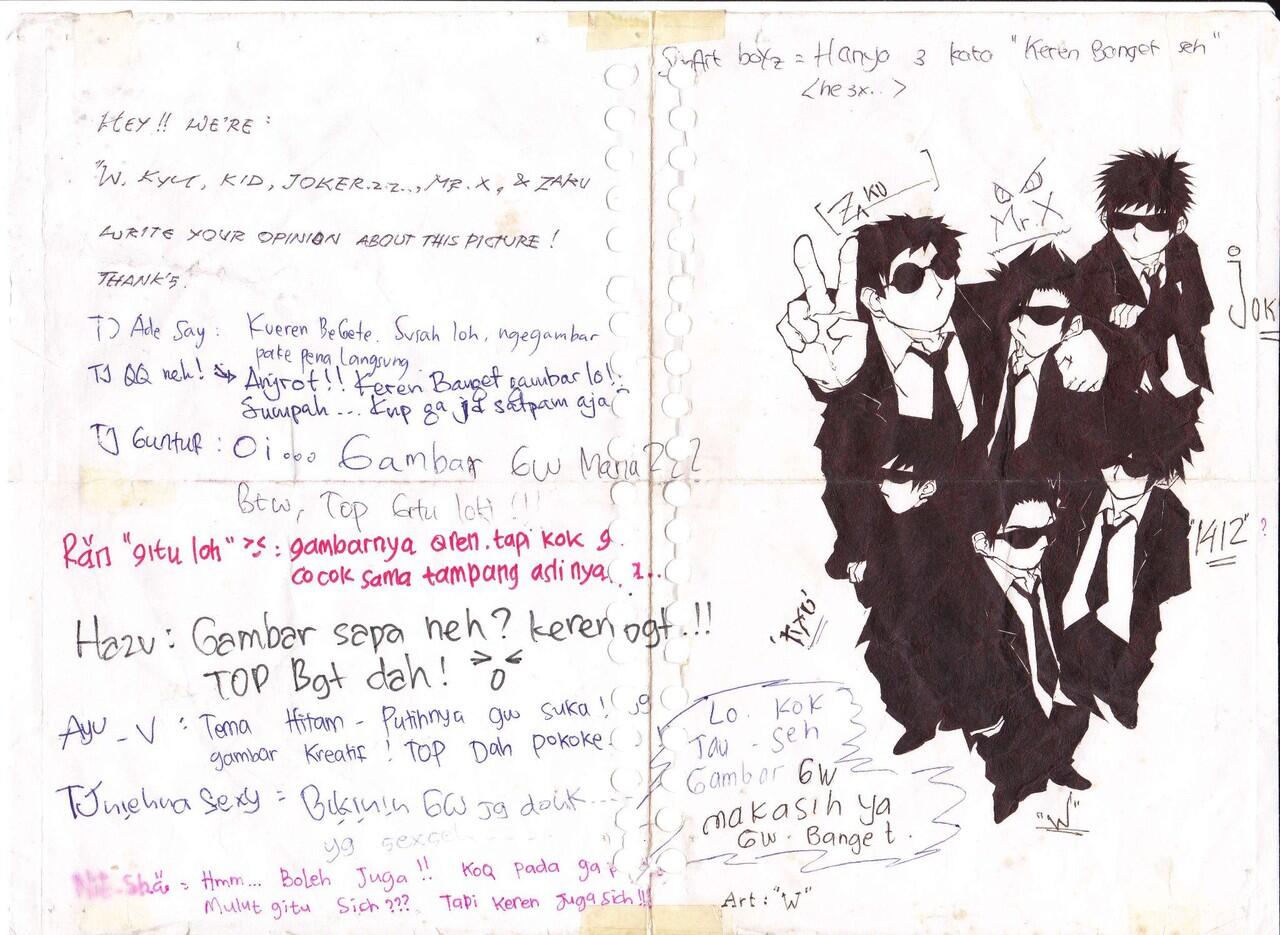 HEY!! WE'RE:
"W, KYU, KID, JOKER.zz.., MR.X, & ZAKU
WRITE YOUR OPINION ABOUT THIS PICTURE!
THANK'S.
TJ Ade Say: Kueren BeGete. Susah loh, ngegambar
pake pena langsung
TJ QQ neh! Anjrot!! Keren Banget gambar lo!
Sumpah... Kup ga jd satpam aja
TJ Guntur: Oi... Gambar GW Mana???
Btw, Top Gitu loh!!!
Rän "gitu loh" >.<: gambarnya Qren. tapi kok g
cocok sama tampang aslinya
Hazu: Gambar sapa neh? keren bgt.!!
TOP Bgt dah! >o<
Ayu_V: Tema Hitam-Putihnya gw suka! Jg
gambar Kreatif! TOP Dah pokoke
Sexy = Bikinin GW jg donk....
yg
Hmm... Boleh Juga!! KoQ pada ga p
Mulut gitu Sich??? Tapi keren Juga Sich!!!
boyz = Hanya 3 kata "Keren Banget seh"
<he 3x..>
[ZAKU]
Mr.X
jok
"1412"?
"W"
Lo. kok
Tau-seh
Gambar GW
makasih ya
GW. Banget.
Art: "W"